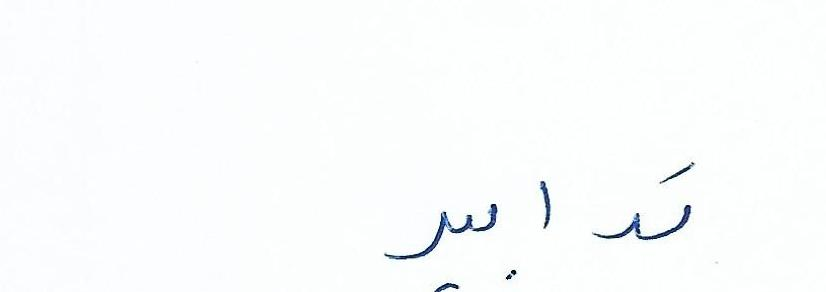 تدابیر